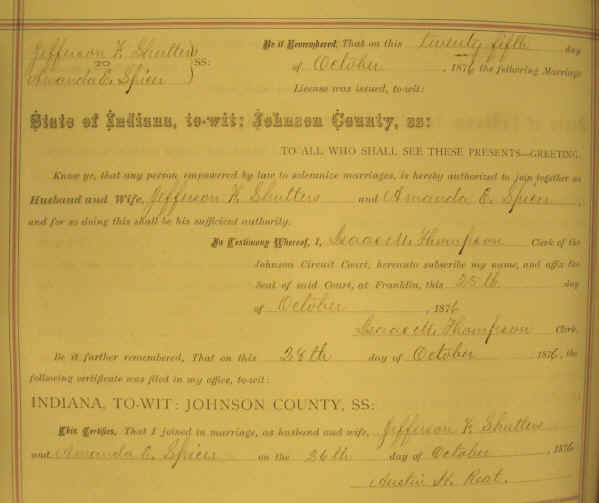 Jefferson F. Shutters
Be it Remembered, That on this twenty fifth day
TO
SS:
Amanda E. Spicer
of October, 1876 the following Marriage
License was issued, to-wit:
State of Indiana, to-wit; Johnson County, ss:
TO ALL WHO SHALL SEE THESE PRESENTS—GREETING.
Know ye, that any person empowered by law to solemnize marriages, is hereby authorized to join together as
Husband and Wife, Jefferson F. Shutters and Amanda E. Spicer,
and for so doing this shall be his sufficient authority.
In Testimony Whereof, I, Isaac M. Thompson Clerk of the
Johnson Circuit Court, hereunto subscribe my name, and affix the
Seal of said Court, at Franklin, this 25th day
of October, 1876
Isaac M. Thompson Clerk.
Be it further remembered, That on this 28th day of October 1876, the
following certificate was filed in my office, to-wit:
INDIANA, TO-WIT: JOHNSON COUNTY, SS:
This Certifies, That I joined in marriage, as husband and wife, Jefferson F. Shutters
and Amanda E. Spicer on the 26th day of October, 1876
Austin H.